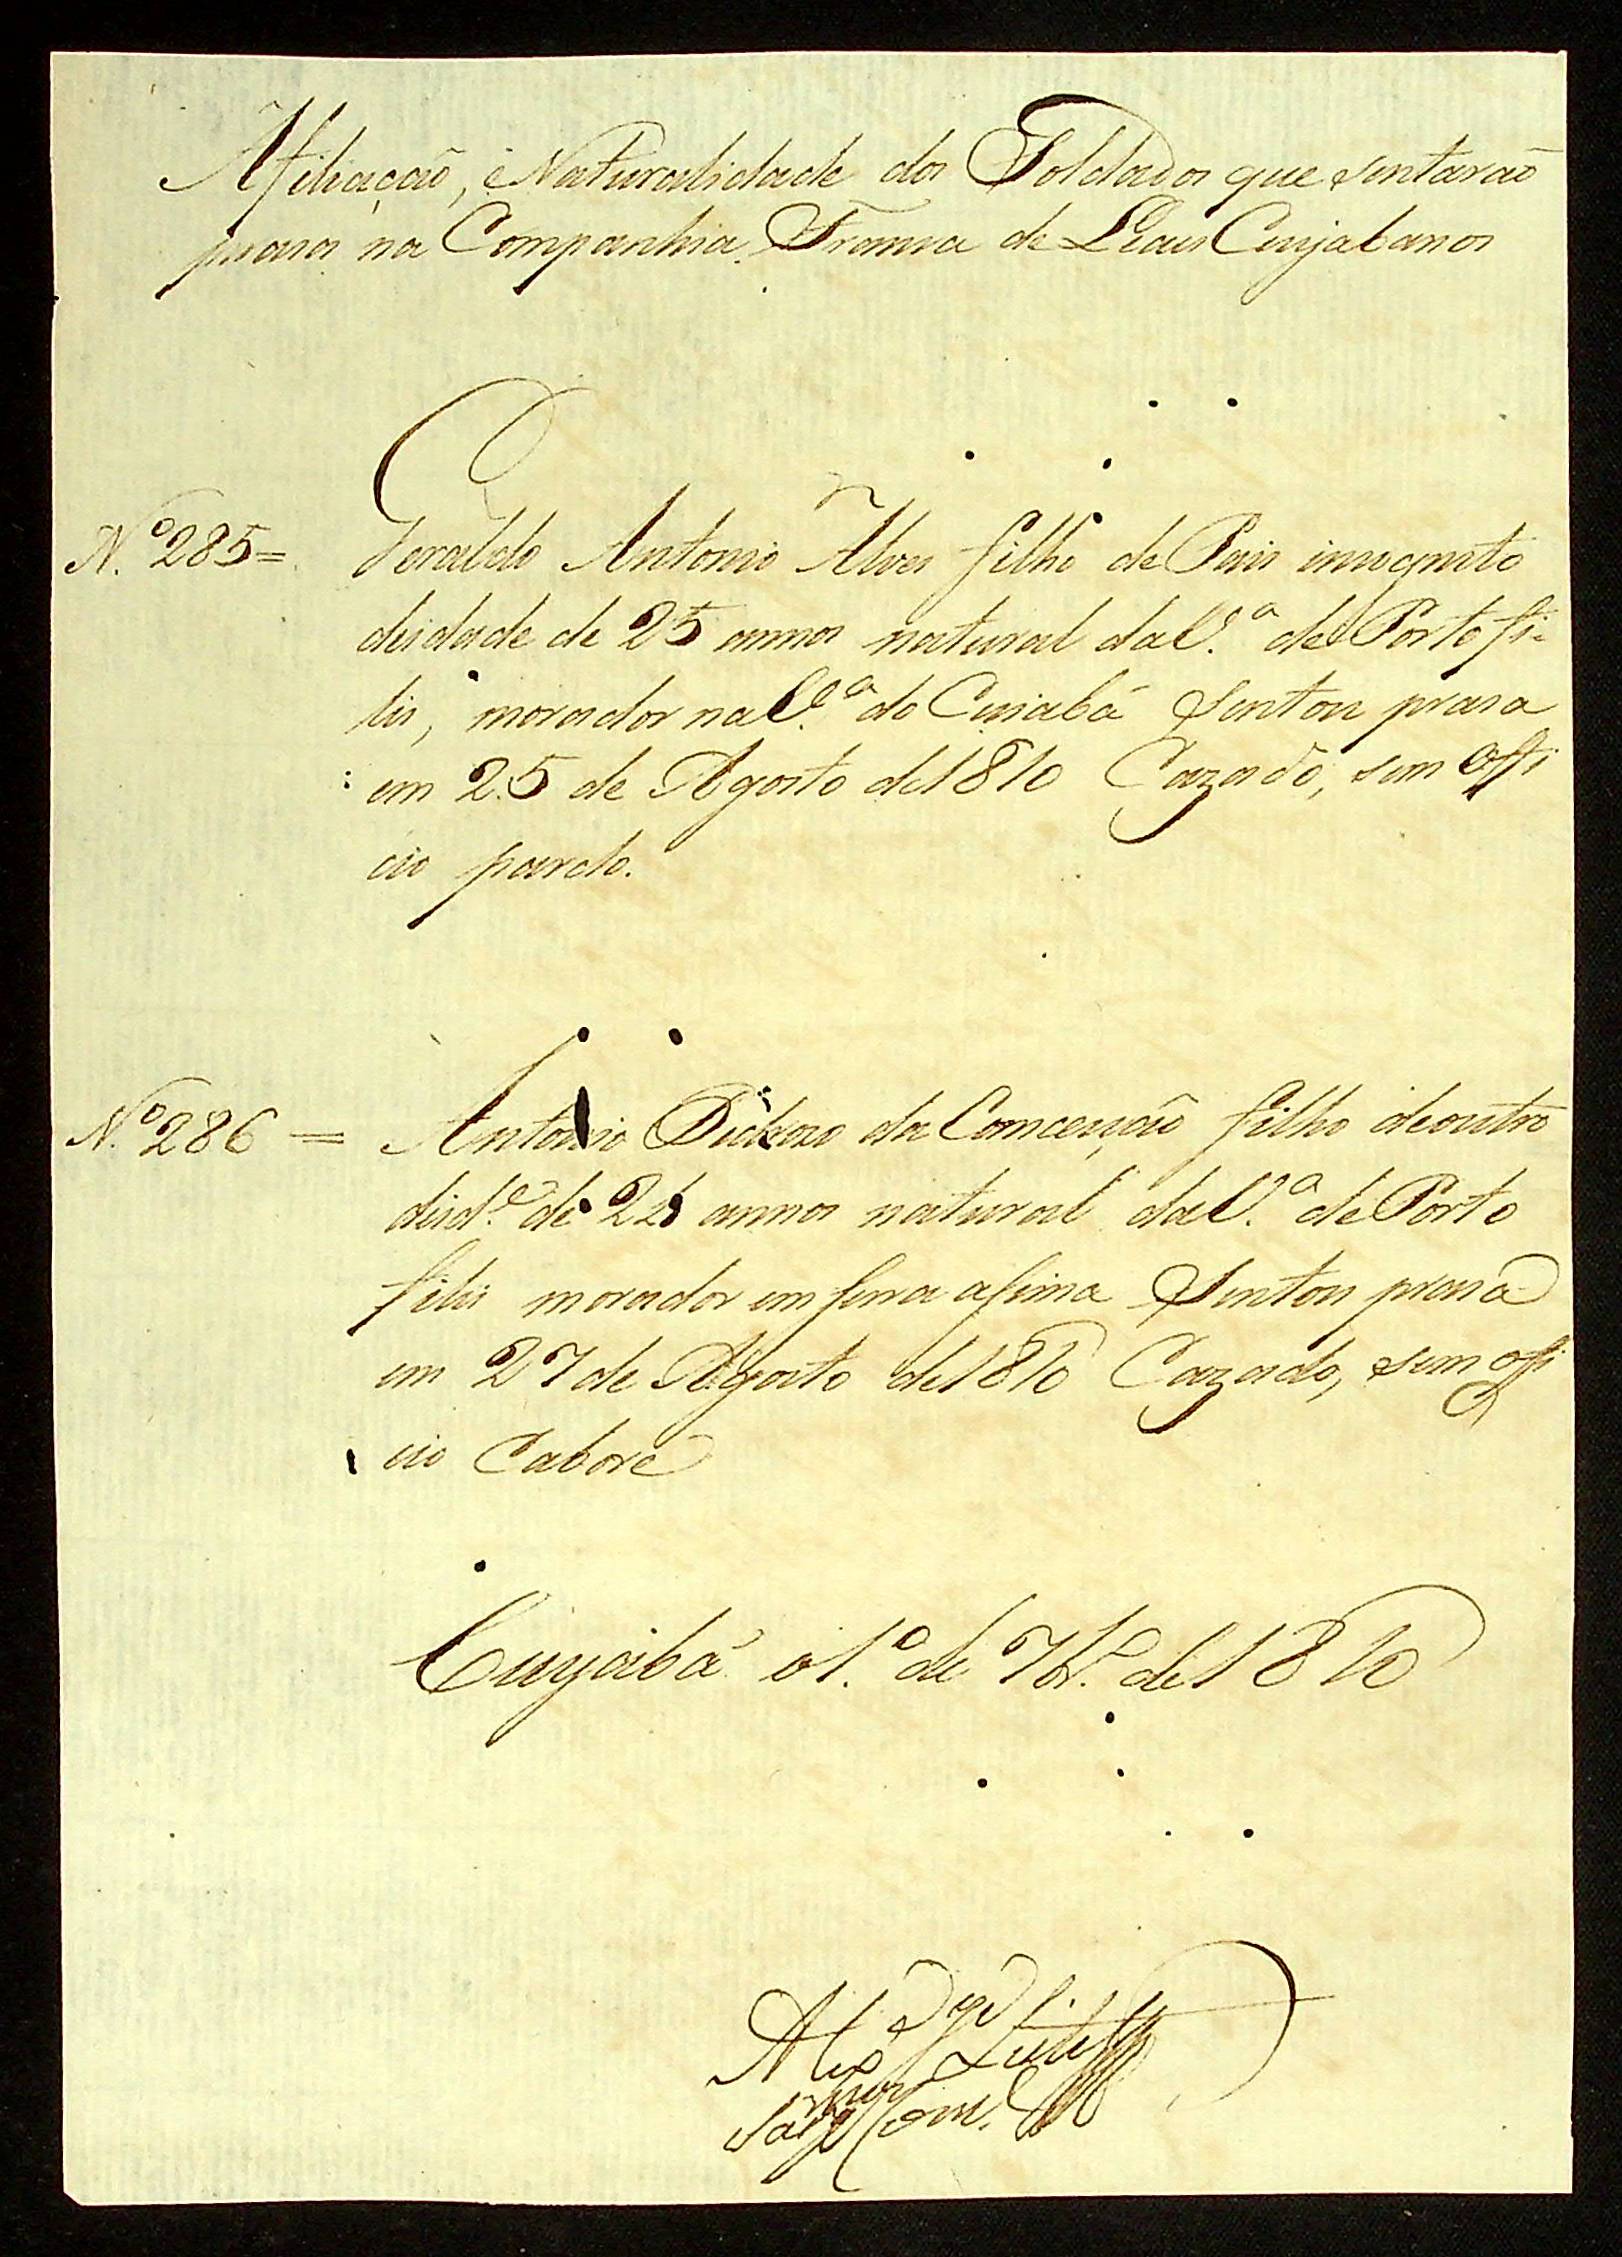 Afiliação, e Naturalidade dos Soldados que sentarão
prasa na Companhia Franca de Liais Cuyabanos
N.º 285 = Geraldo Antonio Alves filho de Pais incognito
deidade de 25 annos natural da V.ª de Porto fi-
lis, morador na V.ª do Cuiabá Sentou prasa
em 25 de Agosto de 1810 Cazado, sem offi
cio pardo.
N.º 286 = Antonio da Comceição filho de outro
deid.e de annos natural da V.ª de Porto
filis morador em serra asima Sentou prasa
em 27 de Agosto de 1810 Cazado, sem offi
cio Caboré
Cuyabá o 1.º de 7br.º de 1810